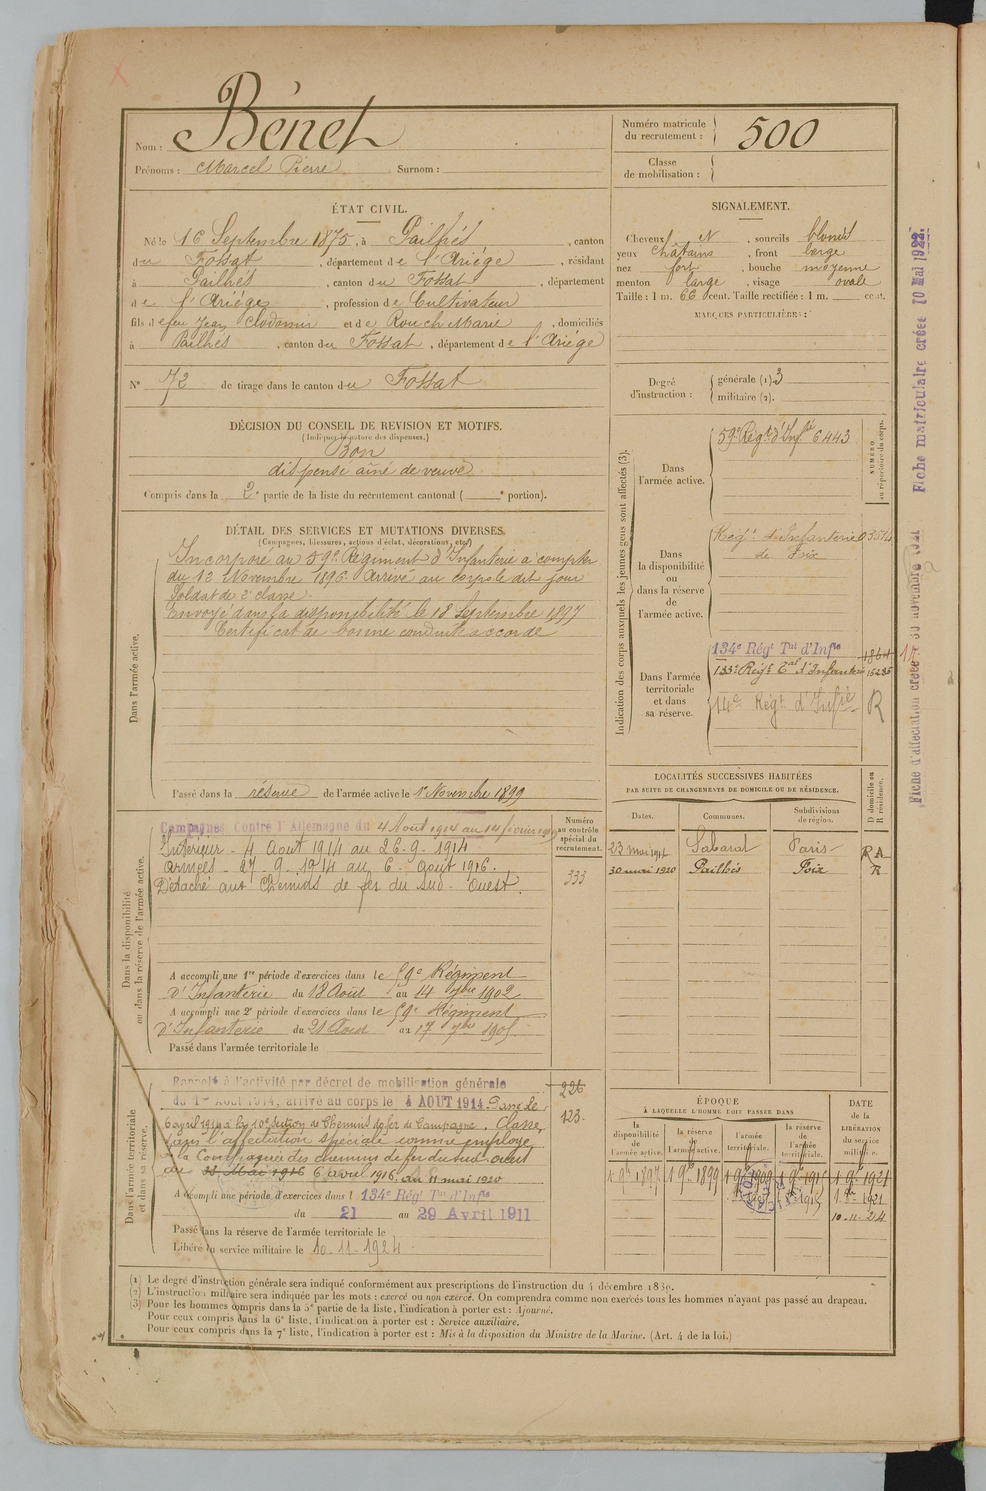 Nom : Bénet
Prénoms : Marcel Pierre Surnom :
Numéro matricule du recrutement : 500
Classe de mobilisation :
ÉTAT CIVIL.
Né le 16 Septembre 1875, à Pailhès, canton
du Fossat, département de l'Ariége, résidant
à Pailhès, canton du Fossat, département
de l'Ariége, profession de Cultivateur
fils de feu Jean Clodomir et de Rouch Marie, domiciliés
à Pailhés, canton du Fossat, département de l'Ariége
N° 72 de tirage dans le canton du Fossat
SIGNALEMENT.
Cheveux et, sourcils blonds
yeux châtains, front large
nez fort, bouche moyenne
menton large, visage ovale
Taille : 1 m. 66 cent. Taille rectifiée : 1 m. cent.
MARQUES PARTICULIÈRES :
Degré d'instruction : générale (1). 3
militaire (2).
DÉCISION DU CONSEIL DE REVISION ET MOTIFS.
(Indiquer la nature des dispenses.)
Bon
dispensé aîné de veuve
Compris dans la 2e partie de la liste du recrutement cantonal ( e portion).
DÉTAIL DES SERVICES ET MUTATIONS DIVERSES.
(Campagnes, blessures, actions d'éclat, décorations, etc.)
Dans l'armée active.
Incorporé au 59e Régiment d'Infanterie à compter
du 12 Novembre 1896. Arrivé au corps le dit jour
Soldat de 2e classe.
Envoyé dans la disponibilité le 18 Septembre 1897
Certificat de bonne conduite accordé
Passé dans la réserve de l'armée active le 1er Novembre 1899
Indication des corps auxquels les jeunes gens sont affectés (3).
NUMÉRO au répertoire du corps.
Dans l'armée active.
59e Régt d'Infie 6443
Dans la disponibilité ou dans la réserve de l'armée active.
Régt d'Infanterie
de Foix
Dans l'armée territoriale et dans sa réserve.
134e Régt Tal d'Infie
133e Régt Tal d'Infanterie 15235
14e Régt d'Infie R
Fiche d'affectation créée 30 novembre 1921
Fiche matriculaire créée 10 Mai 1922.
Dans la disponibilité ou dans la réserve de l'armée active.
Numéro au contrôle spécial du recrutement.
333
Campagnes Contre l'Allemagne du 4 Aout 1914 au 14 février 1919
Intérieur - 4 Aout 1914 au 26-9-1914
Armées - 27-9-1914 au 6 Août 1916.
Détaché aux Chemins de fer du Sud-Ouest.
A accompli une 1re période d'exercices dans le 59e Régiment
d'Infanterie du 18 Août au 14 7bre 1902
A accompli une 2e période d'exercices dans le 59e Régiment
d'Infanterie du 21 Aout au 17 7bre 1905
Passé dans l'armée territoriale le
LOCALITÉS SUCCESSIVES HABITÉES
PAR SUITE DE CHANGEMENTS DE DOMICILE OU DE RÉSIDENCE.
Dates. Communes. Subdivisions de région. D domicile ou R résidence.
23 mai 1911 Sabarat Paris R A
30 mai 1920 Pailhès Foix R
Dans l'armée territoriale et dans sa réserve.
226
123.
Rappelé à l'activité par décret de mobilisation générale
du 1er Août 1914, arrivé au corps le 4 AOUT 1914. Passé le
6 avril 1916 à la 10e Section de Chemins de fer de Campagne. Classé
dans l'affectation spéciale comme employé
à la Compagnie des chemins de fer du sud-ouest
du 6 avril 1916 au 11 mai 1920
A accompli une période d'exercices dans l 134e Régt Tal d'Infie
du 21 au 29 Avril 1911
Passé dans la réserve de l'armée territoriale le
Libéré du service militaire le 10-11-1924.
ÉPOQUE
À LAQUELLE L'HOMME DOIT PASSER DANS
la disponibilité de l'armée active. la réserve de l'armée active. l'armée territoriale. la réserve de l'armée territoriale.
DATE de la LIBÉRATION du service militaire.
1 9b 1897 1 9b 1899 1 9b 1909 1 9b 1915 1 9b 1921
10-11-24
(1) Le degré d'instruction générale sera indiqué conformément aux prescriptions de l'instruction du 4 décembre 1889.
(2) L'instruction militaire sera indiquée par les mots : exercé ou non exercé. On comprendra comme non exercés tous les hommes n'ayant pas passé au drapeau.
(3) Pour les hommes compris dans la 5e partie de la liste, l'indication à porter est : Ajourné.
Pour ceux compris dans la 6e liste, l'indication à porter est : Service auxiliaire.
Pour ceux compris dans la 7e liste, l'indication à porter est : Mis à la disposition du Ministre de la Marine. (Art. 4 de la loi.)